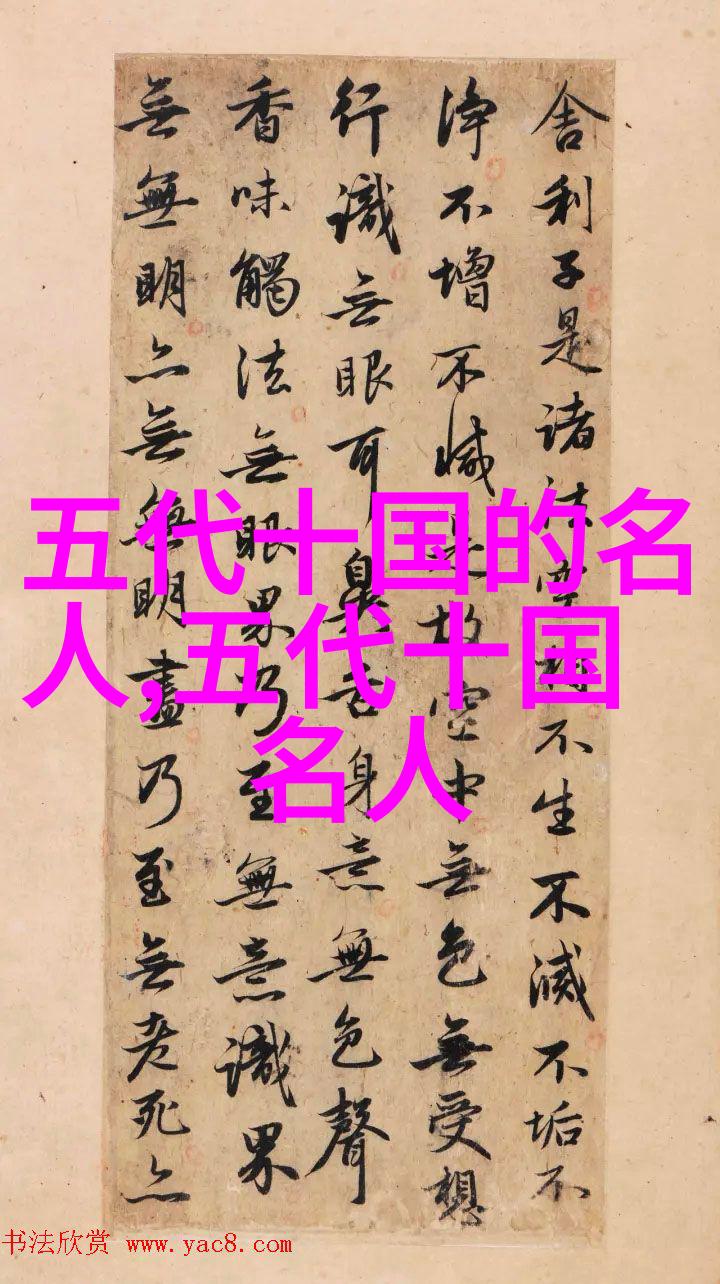 舍利子是諸法空相不生不滅不垢不
淨不增不減是故空中無色無受想
行識无眼耳鼻舌身意無色聲
香味觸法無眼界乃至無意識界
無無明亦無無明盡乃至無老死亦
五代十国的名
人,五代十国
名人
书法欣赏 www.yac8.com